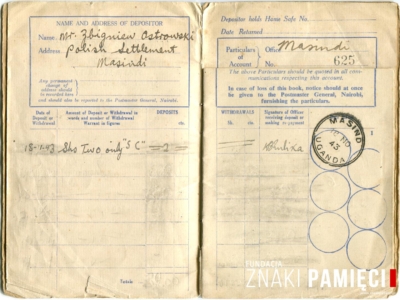 NAME AND ADDRESS OF DEPOSITOR
Name Mr. Zbigniew Ostrowski
Address Polish Settlement
Masindi
Any permanent
change of
address should
be recorded
here
and should also be reported to the Postmaster General, Nairobi.
Date of
Deposit or
Withdrawal
Amount of Deposit or Withdrawal in
words and number of Withdrawal
Warrant in figures
DEPOSITS
Sh. cts.
Shs Two only "S C" — 2 —
Totals
Depositor holds Home Safe No.
Date Returned
Particulars
of
Account
Office Masindi
No. 625
The above Particulars should be quoted in all communications respecting this account.
In case of loss of this book, notice should at once
be given to the Postmaster General, Nairobi,
furnishing the particulars.
WITHDRAWALS
Sh. cts.
Signature of Officer
receiving deposit or
making re-payment
MASINDI
43
UGANDA
FUNDACJA
ZNAKI PAMIĘCI